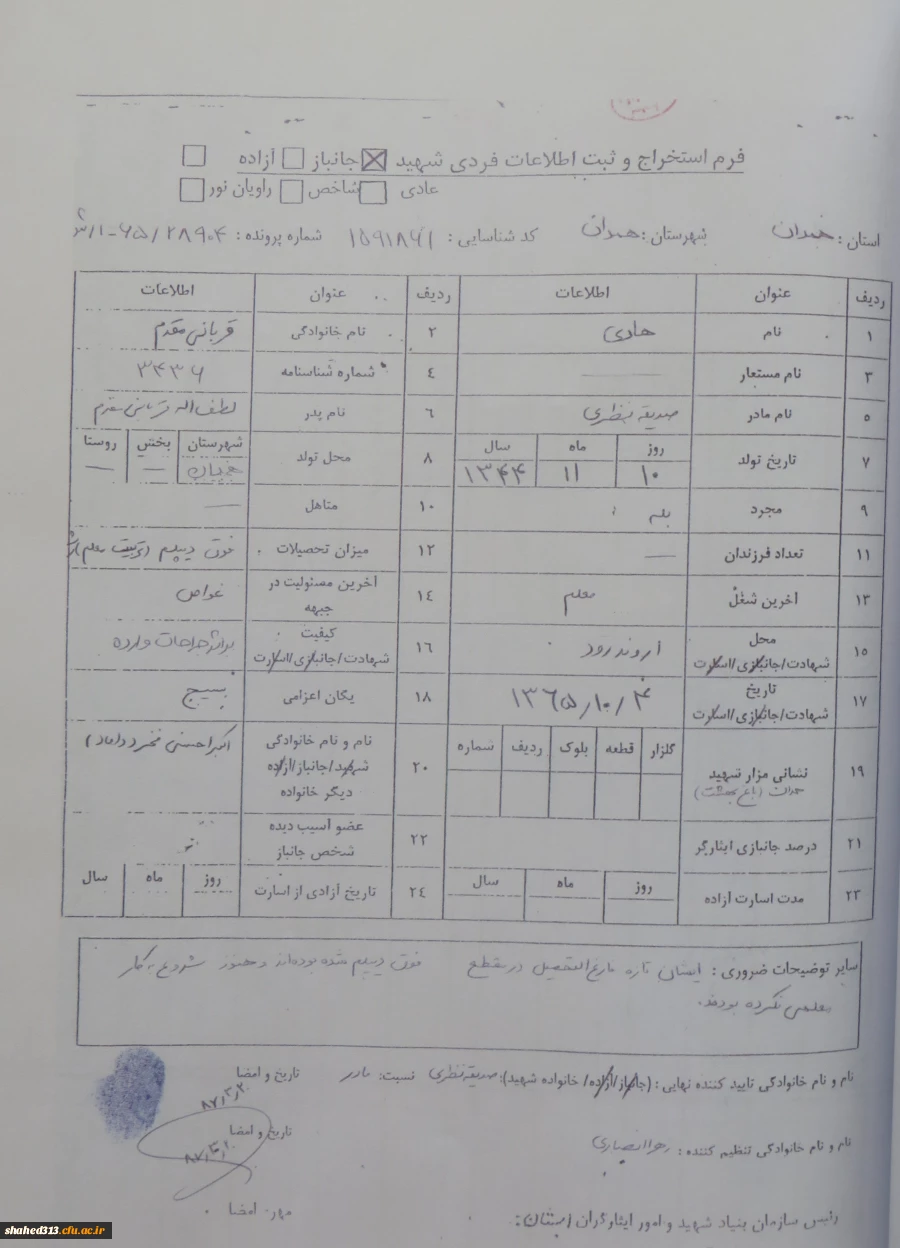 فرم استخراج و ثبت اطلاعات فردی شهید جانباز آزاده
عادی شاخص راویان نور
استان : همدان شهرستان : همدان کد شناسایی : شماره پرونده :
ردیف عنوان اطلاعات ردیف عنوان اطلاعات
۱ نام هادی ۲ نام خانوادگی قربانی مقدم
۳ نام مستعار ۴ شماره شناسنامه ۳۴۳۶
۵ نام مادر صدیقه نظری ۶ نام پدر لطف اله قربانی مقدم
۷ تاریخ تولد روز ماه سال ۸ محل تولد شهرستان بخش روستا
۱۰ ۱۱ ۱۳۴۴
۹ مجرد بله ۱۰ متاهل
۱۱ تعداد فرزندان ۱۲ میزان تحصیلات فوق دیپلم (تربیت معلم)
۱۳ آخرین شغل معلم ۱۴ آخرین مسئولیت در جبهه غواص
۱۵ محل شهادت/جانبازی/اسارت اروندرود ۱۶ کیفیت شهادت/جانبازی/اسارت براثر جراحات وارده
۱۷ تاریخ شهادت/جانبازی/اسارت ۱۳۶۵/۱۰/۴ ۱۸ یگان اعزامی بسیج
۱۹ نشانی مزار شهید همدان (باغ بهشت) گلزار قطعه بلوک ردیف شماره ۲۰ نام و نام خانوادگی شهید/جانباز/آزاده دیگر خانواده
۲۱ درصد جانبازی ایثارگر ۲۲ عضو آسیب دیده شخص جانباز
۲۳ مدت اسارت آزاده روز ماه سال ۲۴ تاریخ آزادی از اسارت روز ماه سال
سایر توضیحات ضروری : ایشان تازه فارغ التحصیل در مقطع فوق دیپلم شده بودند و هنوز شروع به کار
معلمی نکرده بودند.
نام و نام خانوادگی تایید کننده نهایی : (جانباز/آزاده/ خانواده شهید): صدیقه نظری نسبت: مادر تاریخ و امضا
نام و نام خانوادگی تنظیم کننده : زهرا انصاری تاریخ و امضا
رئیس سازمان بنیاد شهید و امور ایثارگران استان: مهر، امضا
shahed313.cfu.ac.ir